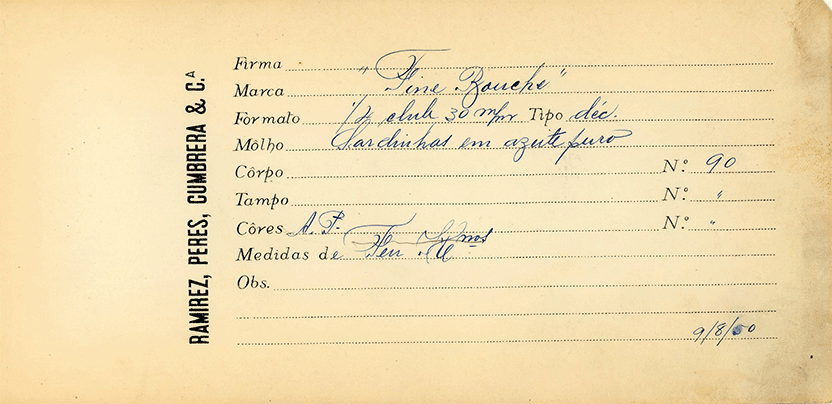 RAMIREZ, PERES, CUMBRERA & C.ᴬ
Firma
Marca "Fine Bouche"
Formato 1/4 club 30 m/m Tipo déc.
Môlho Sardinhas em azeite puro
Côrpo N.º 90
Tampo N.º "
Côres A. P. N.º "
Medidas de
Obs.
9/8/50